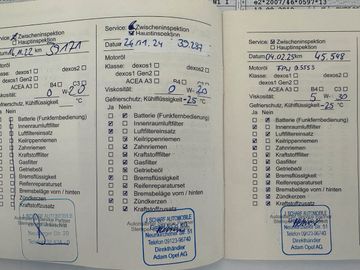 e2*2007/46*0597*13
Service: Zwischeninspektion
Hauptinspektion
km 59171
Motoröl
dexos1 dexos2
dexos1 Gen2
ACEA A3 B4 C3
Viskosität: 0 W-20
Gefrierschutz, Kühlflüssigkeit
Ja Nein
Batterie (Funkfernbedienung)
Innenraumluftfilter
Luftfiltereinsatz
Keilrippenriemen
Zahnriemen
Kraftstofffilter
Gasfilter
Getriebeöl
Bremsflüssigkeit
Reifenreparaturset
Bremsbeläge vorn / hinten
Zündkerzen
Kraftstoffzusatz
Service: Zwischeninspektion
Hauptinspektion
Datum 24.01.24 30.237
Motoröl
dexos1 dexos2
dexos1 Gen2
ACEA A3 B4 C3
Viskosität: 0 W-20
Gefrierschutz, Kühlflüssigkeit -25 °C
Ja Nein
Batterie (Funkfernbedienung)
Innenraumluftfilter
Luftfiltereinsatz
Keilrippenriemen
Zahnriemen
Kraftstofffilter
Gasfilter
Getriebeöl
Bremsflüssigkeit
Reifenreparaturset
Bremsbeläge vorn / hinten
Zündkerzen
Kraftstoffzusatz
J. SCHARF AUTOMOBILE
Neunkirchener Str. 51
Telefon 09123-96740
Direkthändler
Adam Opel AG
Service: Zwischeninspektion
Hauptinspektion
Datum 04.02.25 km 45.548
Motoröl
dexos1 dexos2
dexos1 Gen2
ACEA A3 B4 C3
Viskosität: 5 W-30
Gefrierschutz, Kühlflüssigkeit -25 °C
Ja Nein
Batterie (Funkfernbedienung)
Innenraumluftfilter
Luftfiltereinsatz
Keilrippenriemen
Zahnriemen
Kraftstofffilter
Gasfilter
Getriebeöl
Bremsflüssigkeit
Reifenreparaturset
Bremsbeläge vorn / hinten
Zündkerzen
Kraftstoffzusatz
J. SCHARF AUTOMOBILE
Telefon 09123-96740
Direkthändler
Adam Opel AG